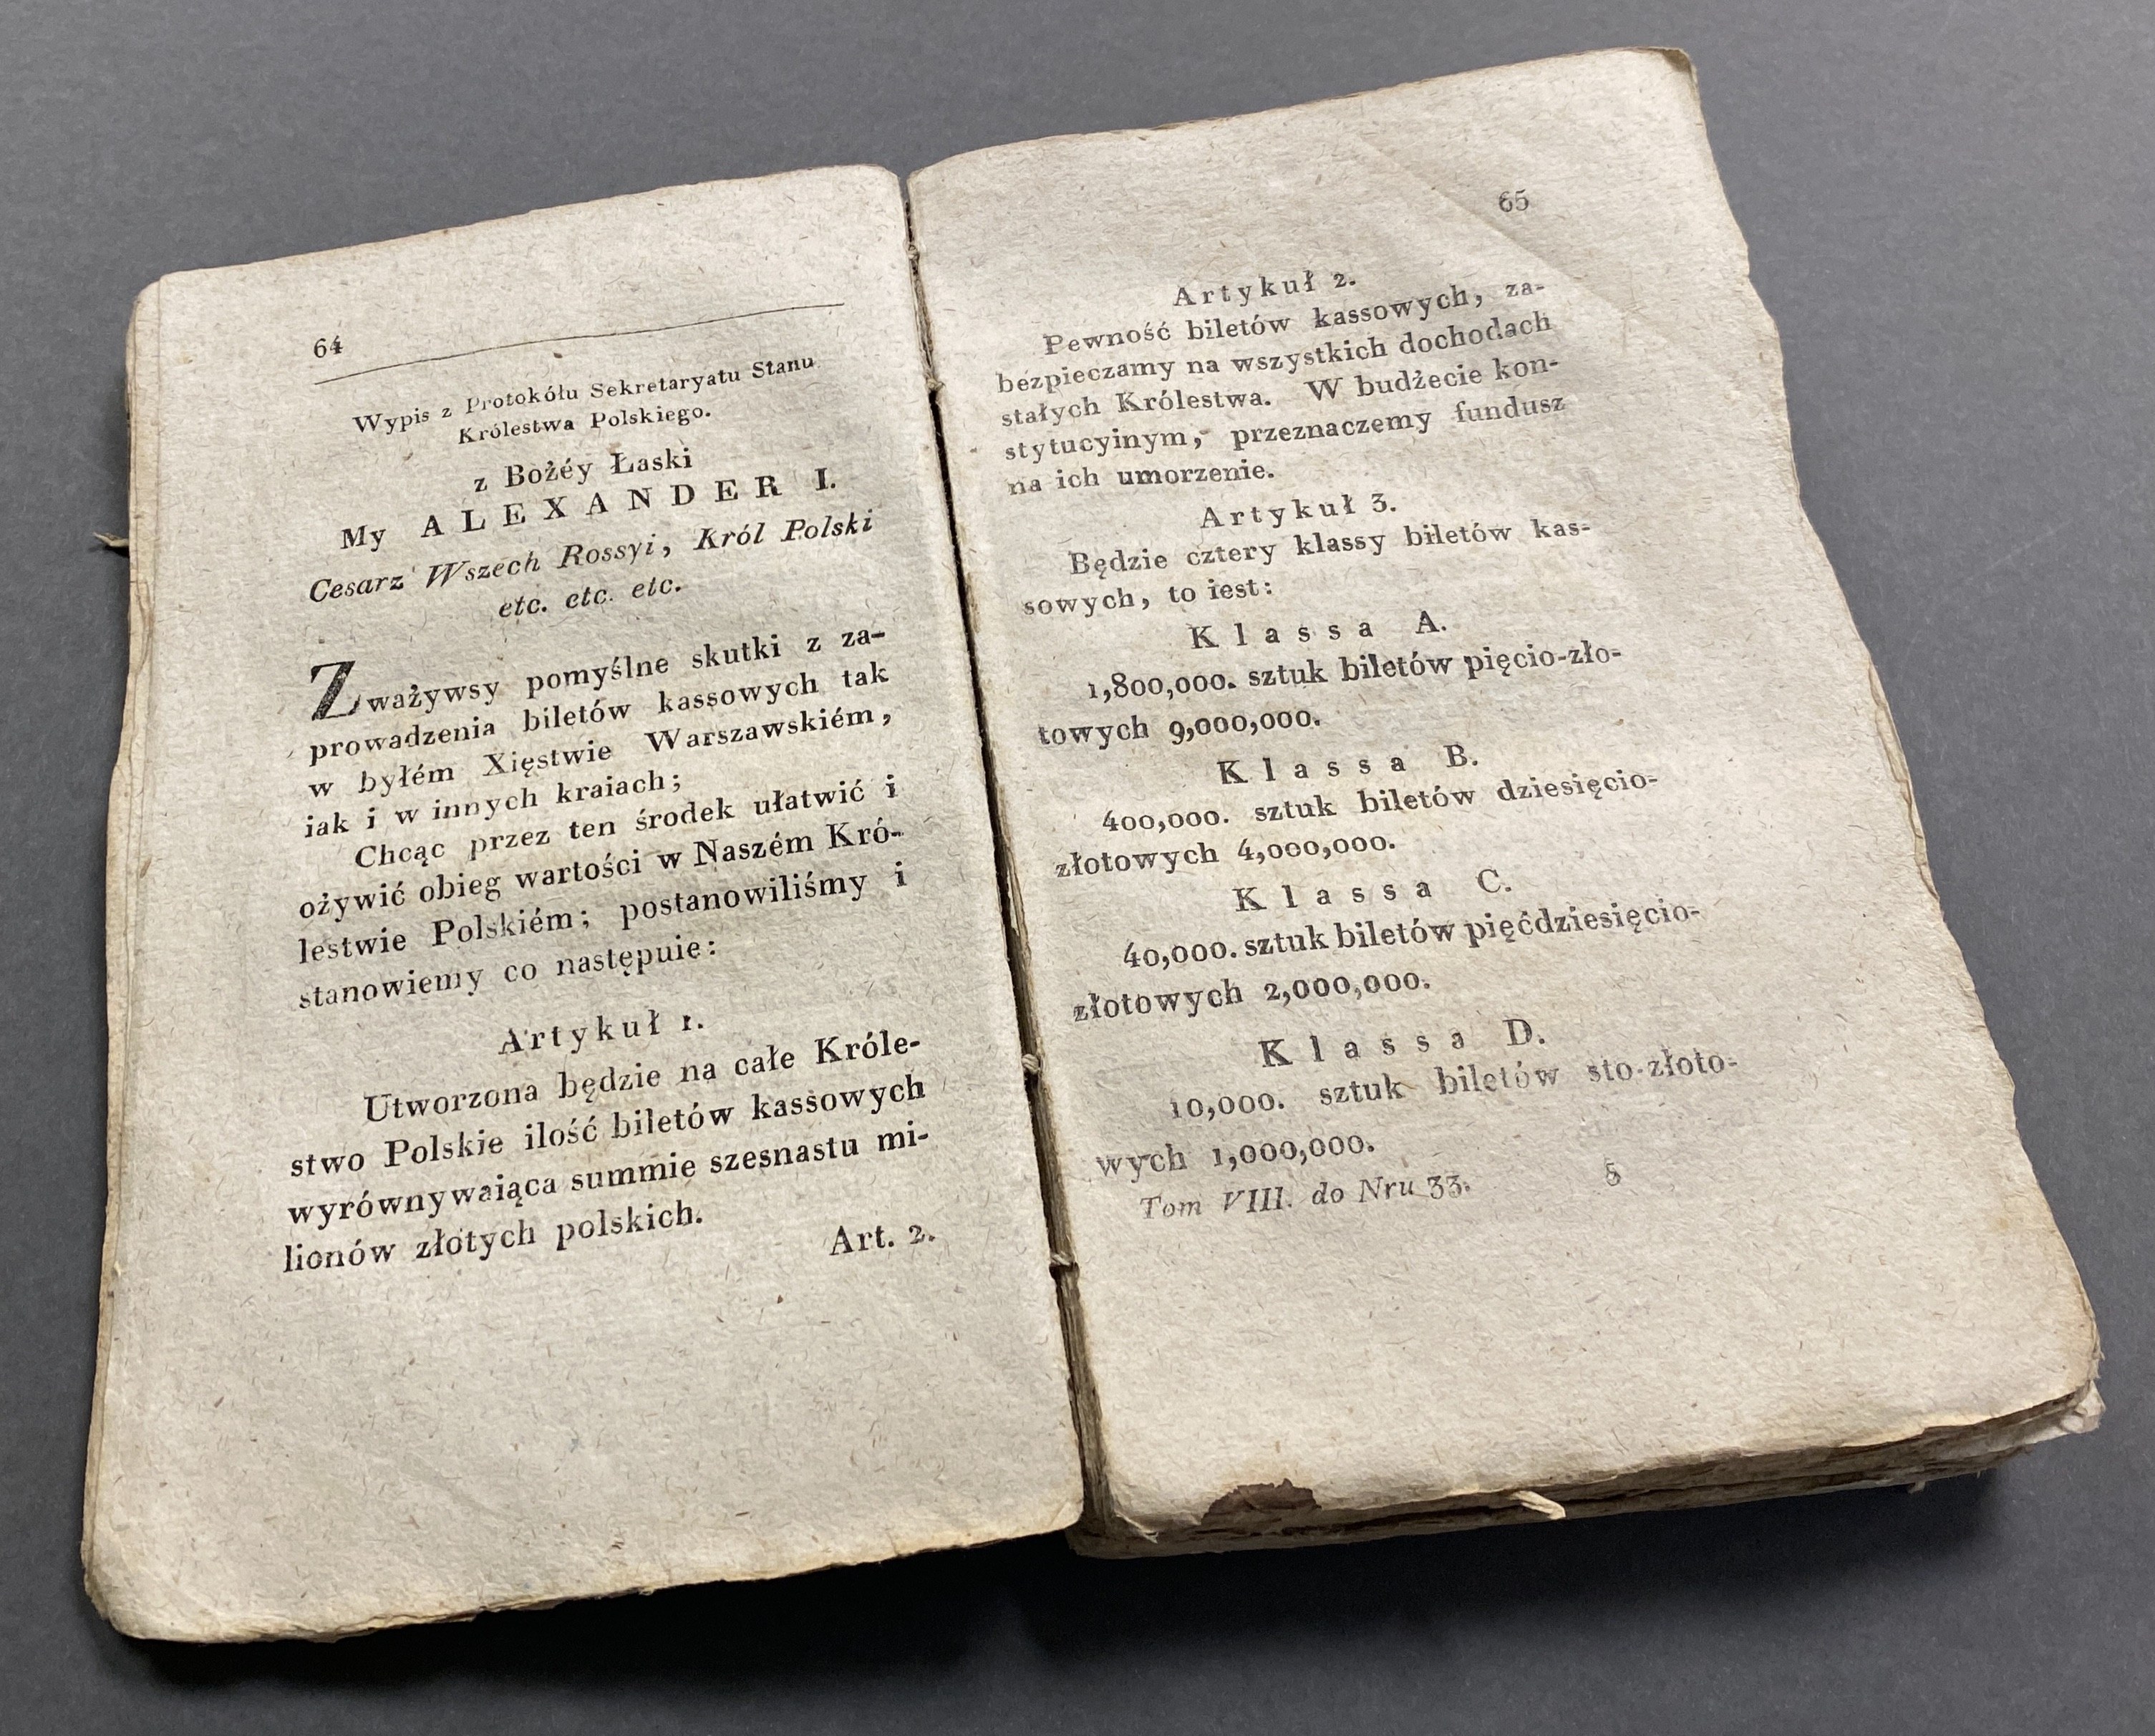 64
Wypis z Protokółu Sekretaryatu Stanu
Królestwa Polskiego.
z Bożéy Łaski
My ALEXANDER I.
Cesarz Wszech Rossyi, Król Polski
etc. etc. etc.
Zważywsy pomyślne skutki z za-
prowadzenia biletów kassowych tak
w byłém Xięstwie Warszawskiém,
iak i w innych kraiach;
Chcąc przez ten środek ułatwić i
ożywić obieg wartości w Naszém Kró-
lestwie Polskiém; postanowiliśmy i
stanowiemy co następuie:
Artykuł 1.
Utworzona będzie na całe Króle-
stwo Polskie ilość biletów kassowych
wyrównywaiąca summie szesnastu mi-
lionów złotych polskich.
Art. 2.
65
Artykuł 2.
Pewność biletów kassowych, za-
bezpieczamy na wszystkich dochodach
stałych Królestwa. W budżecie kon-
stytucyinym, przeznaczemy fundusz
na ich umorzenie.
Artykuł 3.
Będzie cztery klassy biletów kas-
sowych, to iest:
Klassa A.
1,800,000. sztuk biletów pięcio-zło-
towych 9,000,000.
Klassa B.
400,000. sztuk biletów dziesięcio-
złotowych 4,000,000.
Klassa C.
40,000. sztuk biletów pięćdziesięcio-
złotowych 2,000,000.
Klassa D.
10,000. sztuk biletów sto-złoto-
wych 1,000,000.
Tom VIII. do Nru 33. 5